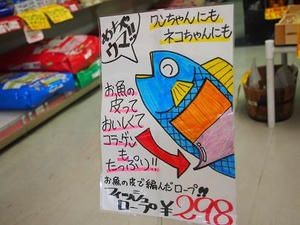 ワンちゃんにも
ネコちゃんにも
お魚の
皮って
おいしくて
コラーゲン
も
たっぷり!!
お魚の皮で編んだロープ!!
フィッシュ
ロープ ¥298